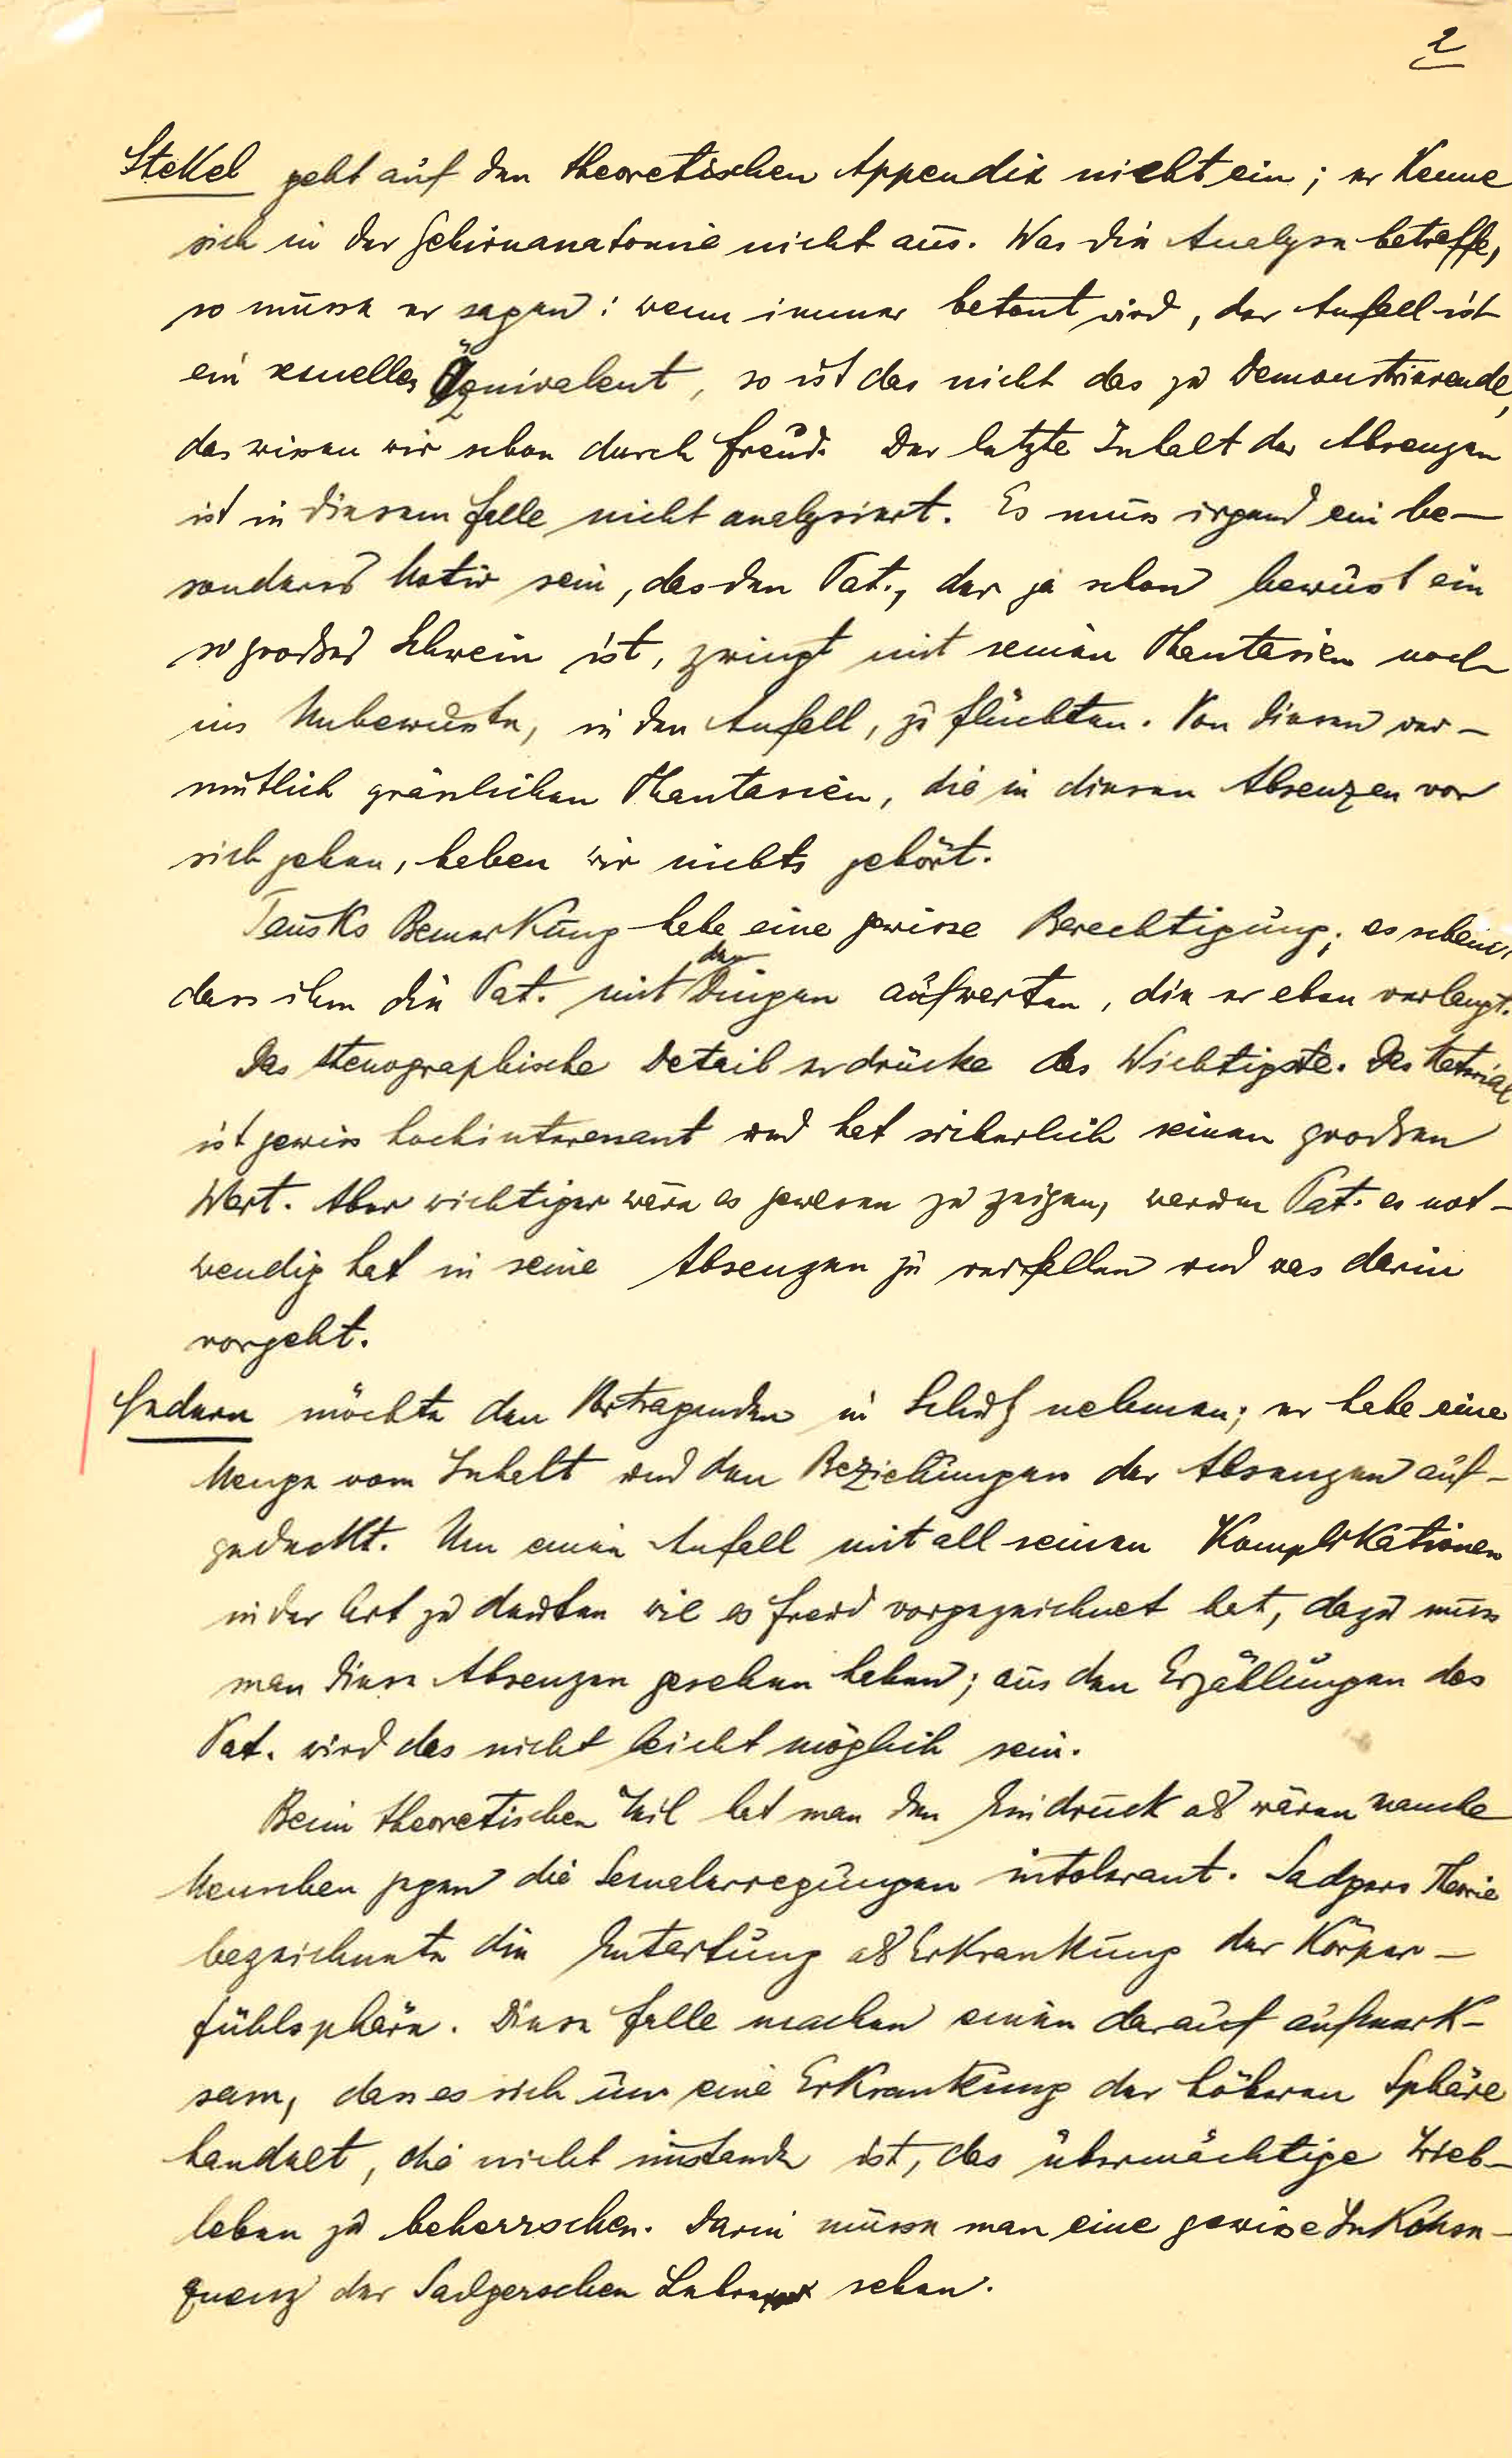 2
Stekel geht auf den theoretischen Appendix nicht ein; er kenne
sich in der Gehirnanatomie nicht aus. Was die Analyse betreffe,
so müsse er sagen: wenn immer betont wird, der Anfall ist
ein sexuelles Äquivalent, so ist das nicht das zu Demonstrierende,
das wissen wir schon durch Freud. Der letzte Inhalt der Absenzen
ist in diesem Falle nicht analysiert. Es muss irgend ein be-
sonderes Motiv sein, das den Pat., der ja schon bewusst ein
so grosses Schwein ist, zwingt mit seinen Phantasien noch
ins Unbewusste, in den Anfall, zu flüchten. Von diesen ver-
mutlich grässlichen Phantasien, die in diesen Absenzen vor
sich gehen, haben wir nichts gehört.
Tausks Bemerkung habe eine gewisse Berechtigung; es scheine,
dass ihm die Pat. mit den Dingen aufwarten, die er eben verlangt.
Das stenographische Detail erdrücke das Wichtigste. Das Material
ist gewiss hochinteressant und hat sicherlich seinen grossen
Wert. Aber wichtiger wäre es gewesen zu zeigen, warum Pat. es not-
wendig hat in seine Absenzen zu verfallen und was darin
vorgeht.
Federn möchte den Vortragenden in Schutz nehmen; er habe eine
Menge vom Inhalt und den Beziehungen der Absenzen auf-
gedeckt. Um einen Anfall mit all seinen Komplikationen
in der Art zu deuten wie es Freud vorgezeichnet hat, dazu muss
man diese Absenzen gesehen haben; aus den Erzählungen des
Pat. wird das nicht leicht möglich sein.
Beim theoretischen Teil hat man den Eindruck als wären manche
Menschen gegen die Sexualerregungen intolerant. Sadgers Theorie
bezeichnete die Entartung als Erkrankung der Körper-
fühlsphäre. Diese Fälle machen einen darauf aufmerk-
sam, dass es sich um eine Erkrankung der höheren Sphäre
handelt, die nicht imstande ist, das übermächtige Trieb-
leben zu beherrschen. Darin müsse man eine gewisse Inkonse-
quenz der Sadgerschen Lehre sehen.